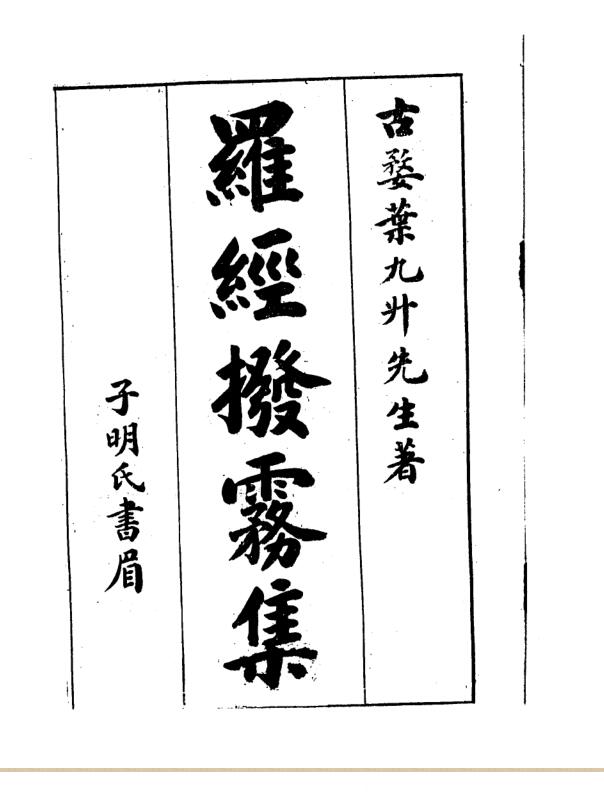 古婺葉九升先生著
羅經撥霧集
子明氏書眉